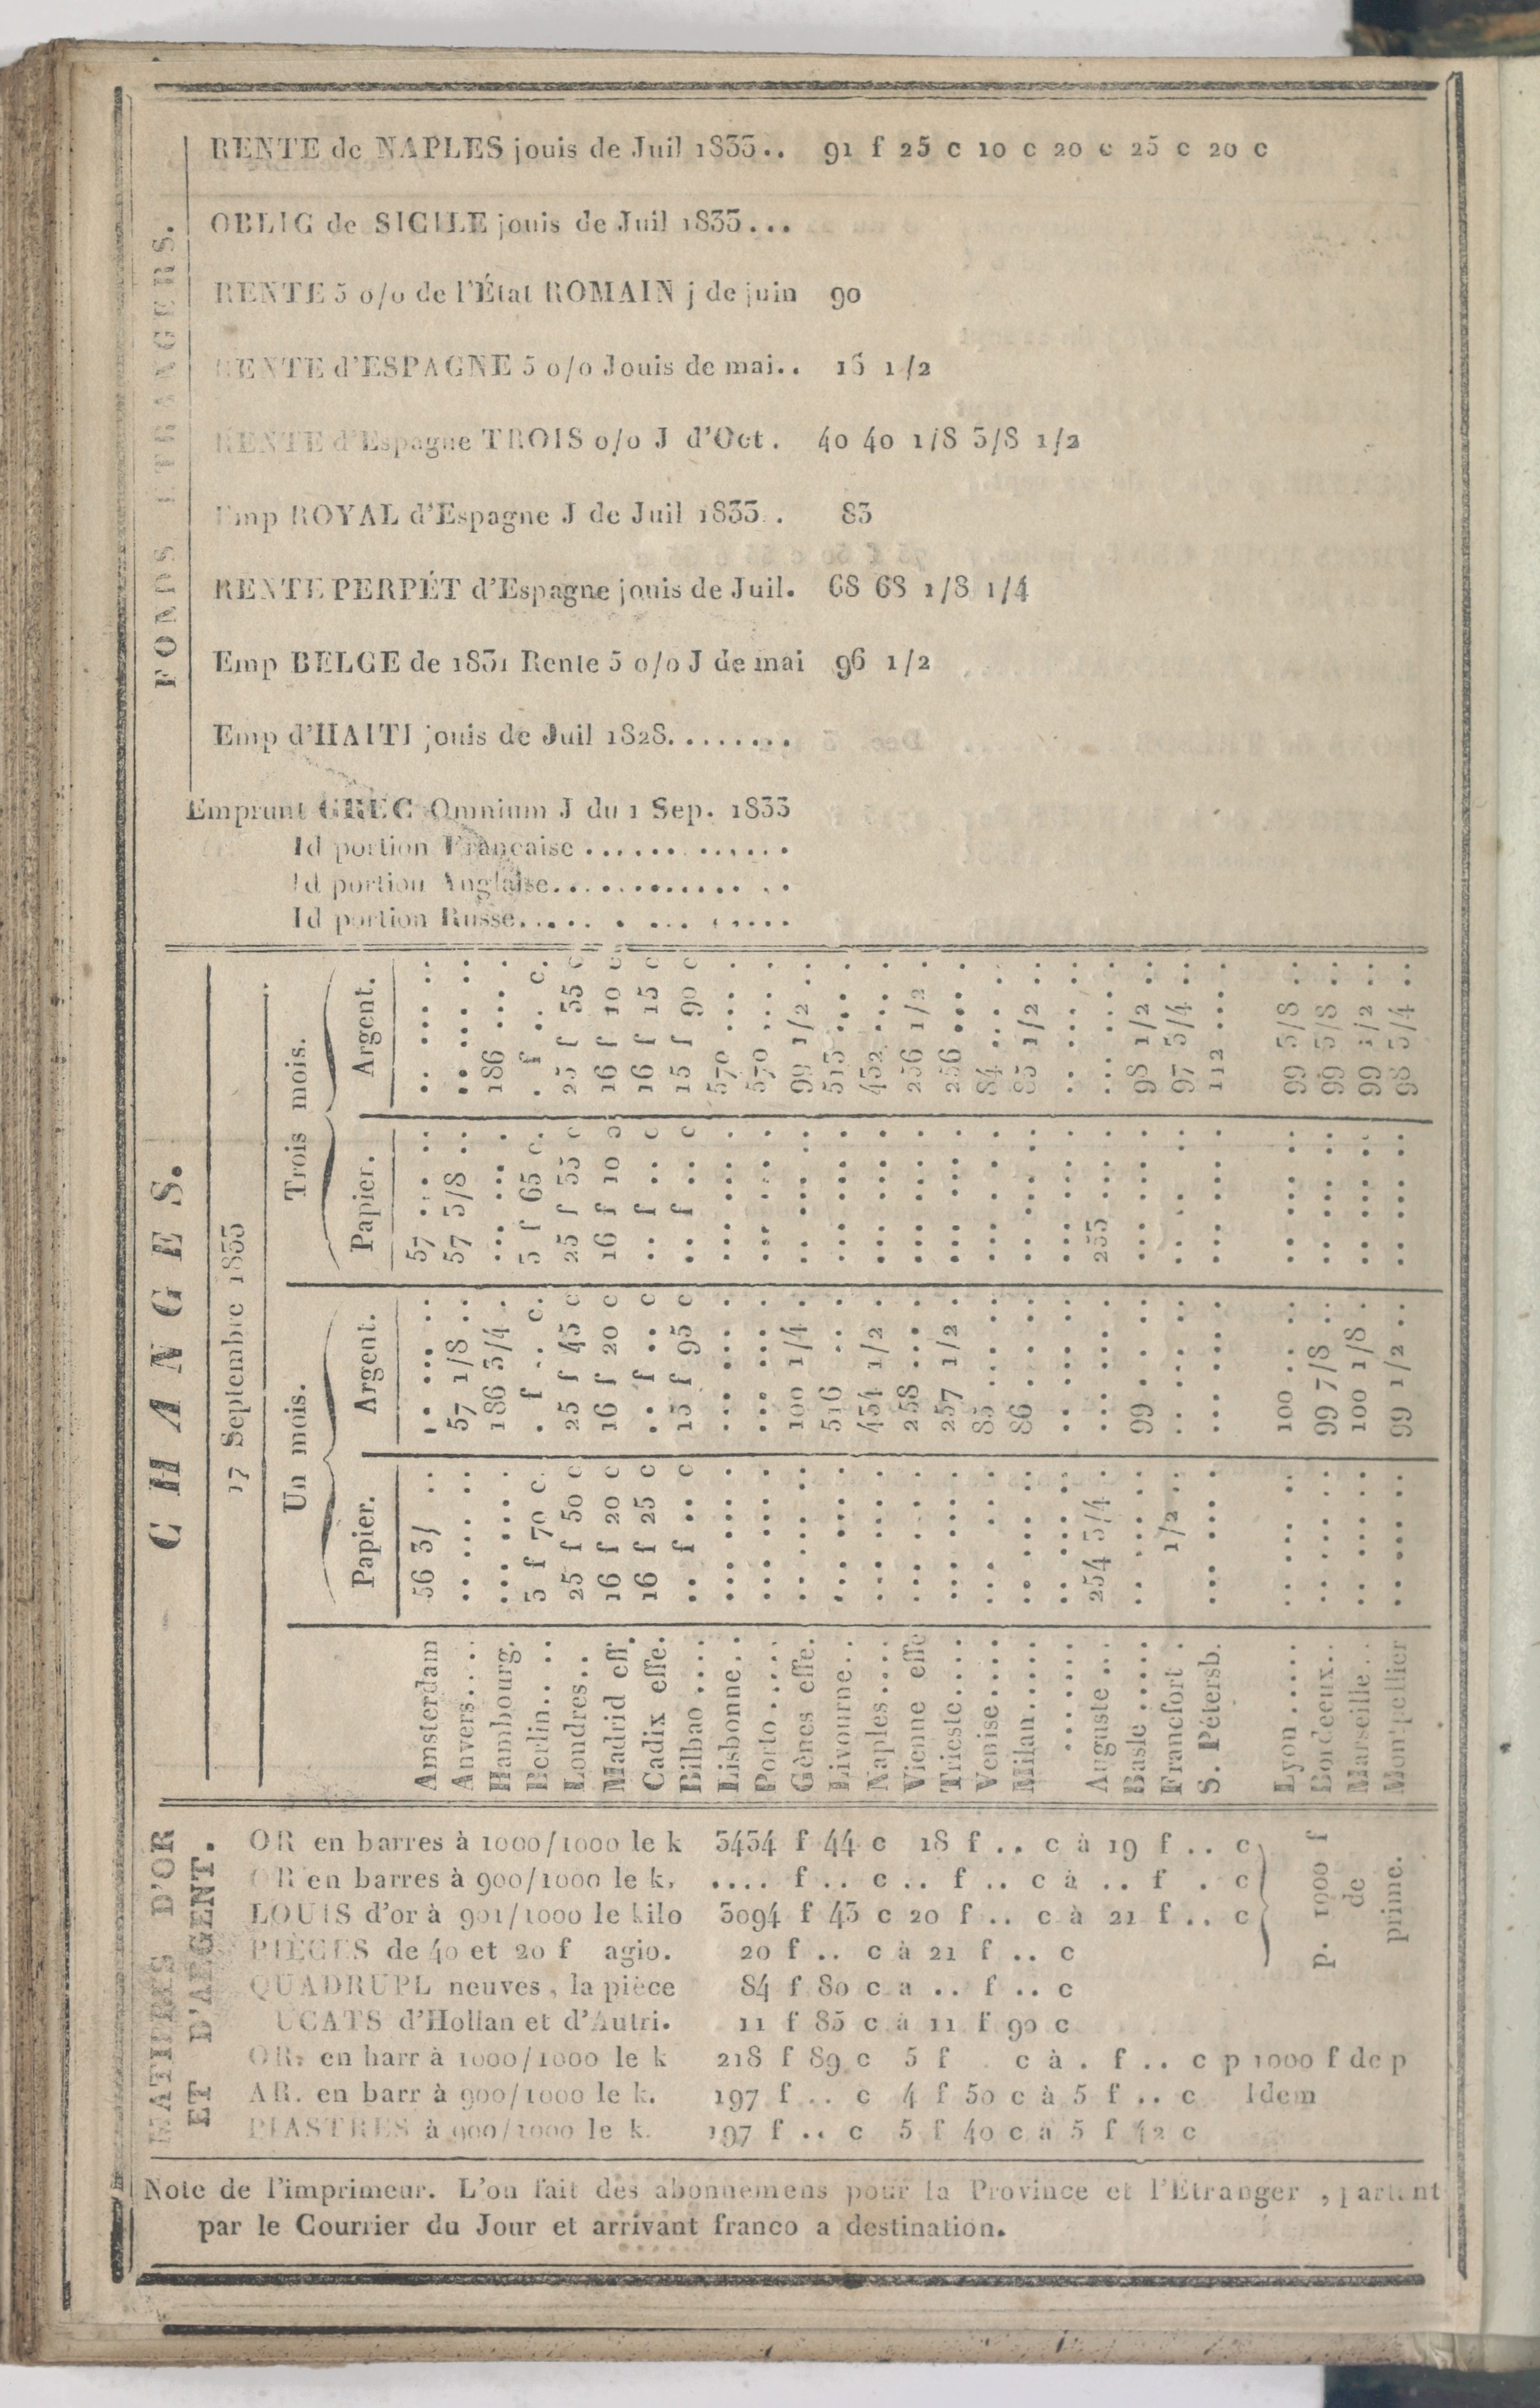 FONDS ETRANGERS.
RENTE de NAPLES jouis de Juil 1833.. 91 f 25 c 10 c 20 c 25 c 20 c
OBLIG de SICILE jouis de Juil 1833...
RENTE 5 o/o de l'État ROMAIN j de juin 90
RENTE d'ESPAGNE 5 o/o Jouis de mai.. 15 1/2
RENTE d'Espagne TROIS o/o J d'Oct. 40 40 1/8 3/8 1/2
Emp ROYAL d'Espagne J de Juil 1833.. 83
RENTE PERPÉT d'Espagne jouis de Juil. 68 68 1/8 1/4
Emp BELGE de 1831 Rente 5 o/o J de mai 96 1/2
Emp d'HAITI jouis de Juil 1828........
Emprunt GREC Omnium J du 1 Sep. 1833
Id portion Française ............
Id portion Anglaise..............
Id portion Russe.............
CHANGES.
17 Septembre 1833
Un mois. Trois mois.
Papier. Argent. Papier. Argent.
Amsterdam 56 3/ .. .. ... .. 57 ... .. .. ... ..
Anvers.... .. ... .. 57 1/8 .. 57 3/8 .. .. ... ..
Hambourg. ... ... . 186 3/4 . ... ... . 186 ... .
Berlin.... 3 f 70 c. . f .. c. 3 f 65 c. . f .. c.
Londres.. 25 f 50 c 25 f 45 c 25 f 35 c 25 f 35 c
Madrid eff. 16 f 20 c 16 f 20 c 16 f 10 c 16 f 10 c
Cadix effe. 16 f 25 c .. f .. c .. f .. c 16 f 15 c
Bilbao .... .. f .. c 15 f 95 c .. f .. c 15 f 90 c
Lisbonne.. ... ... . ... ... . ... ... . 570 ... .
Porto..... ... ... . ... ... . ... ... . 570 ... .
Gènes effe. .. ... . 100 1/4 . .. ... . 99 1/2 .
Livourne.. ... ... . 516 .. . ... ... . 513 ... .
Naples.... ... ... . 434 1/2 . ... ... . 432 ... .
Vienne effe ... ... . 258 ... . ... ... . 256 1/2 .
Trieste.... ... ... . 257 1/2 . ... ... . 256 ... .
Venise.... ... .. . 85 ... . ... .. . 84 ... .
Milan..... .. ... . 86 ... . .. ... . 85 1/2 .
....... ... ... . .. ... . ... ... . .. ... .
Auguste... 254 3/4 . ... ... . 253 ... . ... ... .
Basle ..... .. ... .. 99 . .. ... ... .. 98 1/2 ..
Francfort . 1/2 .. .. ... . .. . . 97 3/4 ..
S. Pétersb. ... ... . ... ... . ... ... . 112 ... .
Lyon ..... .. ... .. 100 .. .. .. ... .. 99 5/8 ..
Bordeeux... .. ... .. 99 7/8 .. .. ... .. 99 5/8 ..
Marseille .. .. ... .. 100 1/8 . .. ... .. 99 1/2 ..
Montpellier .. ... .. 99 1/2 .. .. ... .. 98 3/4 ..
MATIERES D'OR
ET D'ARGENT.
OR en barres à 1000/1000 le k 3434 f 44 c 18 f .. c à 19 f .. c
OR en barres à 900/1000 le k, .... f .. c .. f .. c à .. f . c
LOUIS d'or à 901/1000 le kilo 3094 f 43 c 20 f .. c à 21 f .. c
p. 1000 f
de
prime.
PIÈCES de 40 et 20 f agio. 20 f .. c à 21 f .. c
QUADRUPL neuves, la pièce 84 f 80 c a .. f .. c
UCATS d'Hollan et d'Autri. 11 f 85 c à 11 f 90 c
en barr à 1000/1000 le k 218 f 89 c 5 f . c à . f .. c p 1000 f de p
AR. en barr à 900/1000 le k. 197 f .. c 4 f 50 c à 5 f .. c Idem
PIASTRES à 900/1000 le k. 197 f .. c 5 f 40 c à 5 f 42 c
Note de l'imprimeur. L'on fait des abonnemens pour la Province et l'Etranger , partant
par le Courrier du Jour et arrivant franco a destination.